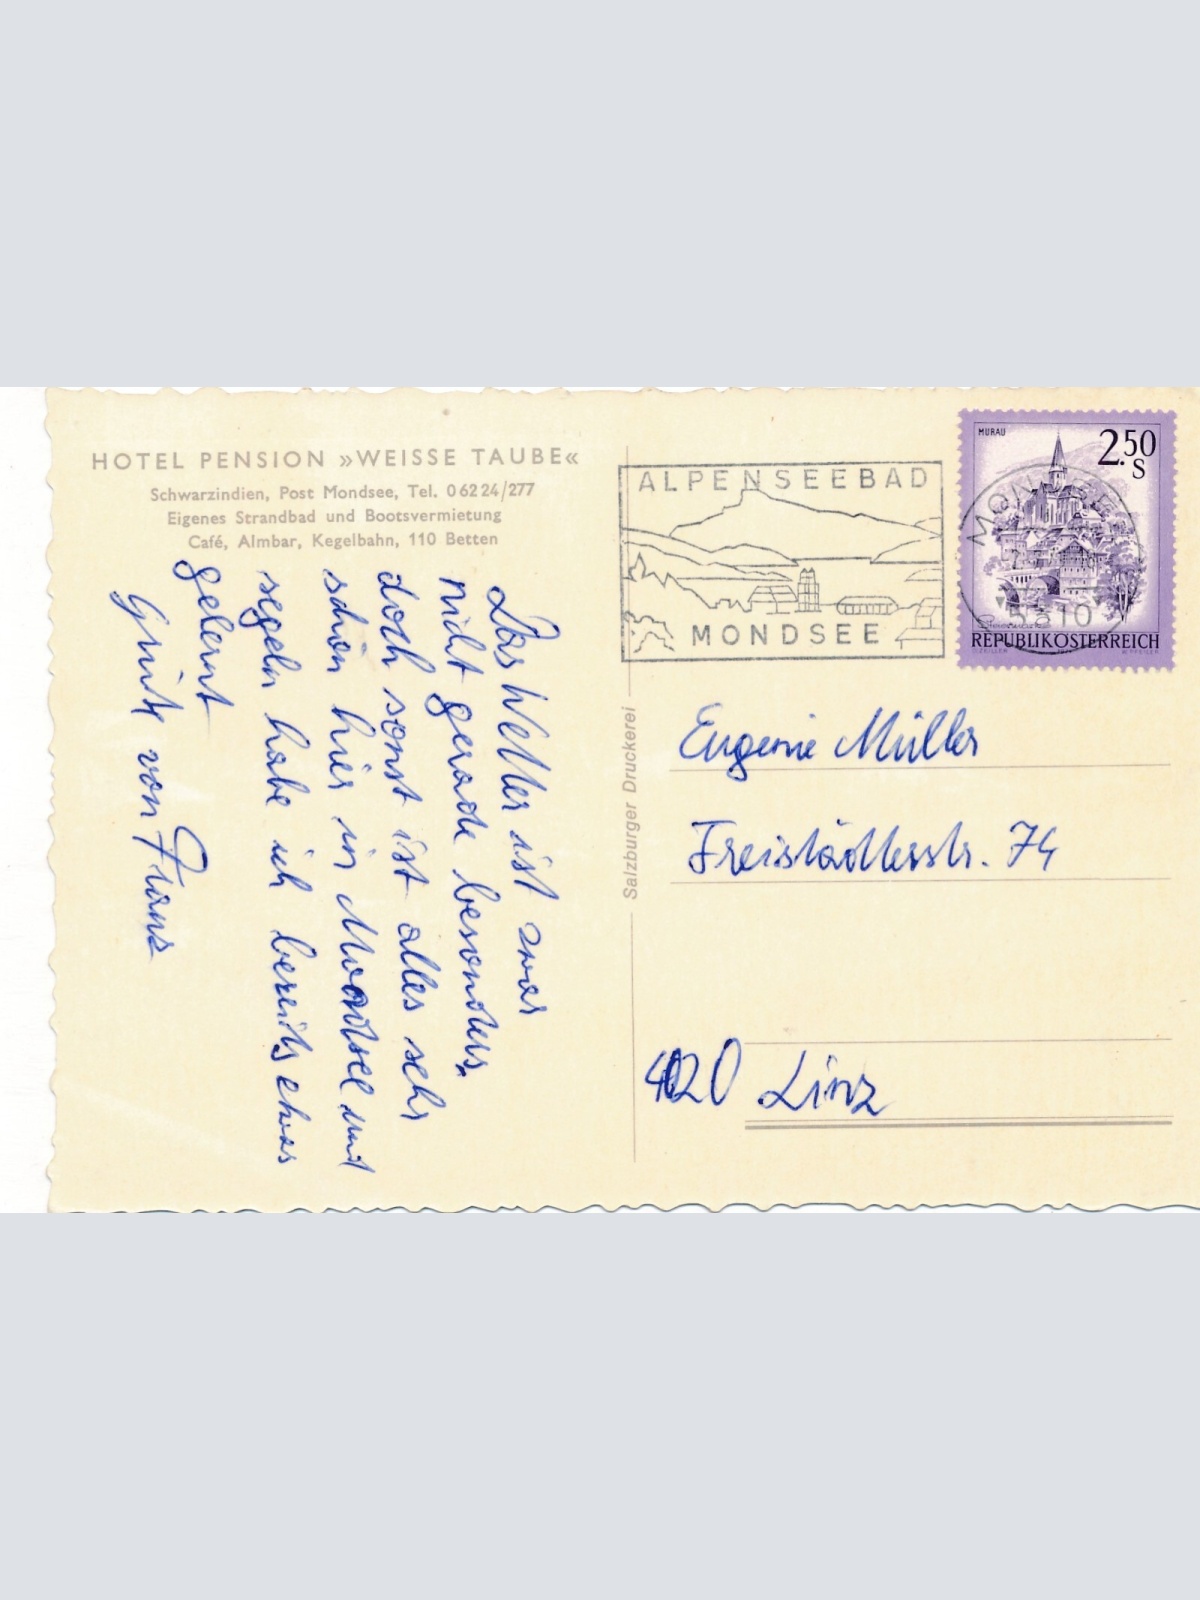 HOTEL PENSION »WEISSE TAUBE«
Schwarzindien, Post Mondsee, Tel. 0 62 24/277
Eigenes Strandbad und Bootsvermietung
Café, Almbar, Kegelbahn, 110 Betten
Das Wetter ist zwar
nicht gerade besonders.
doch sonst ist alles sehr
schön hier in Mondsee und
segeln habe ich bereits etwas
gelernt
Grüße von Franz
Salzburger Druckerei
ALPENSEEBAD
MONDSEE
MURAU
2.50
S
MONDSEE
5310
Steiermark
REPUBLIK ÖSTERREICH
Eugenie Müller
Freistädterstr. 74
4020 Linz